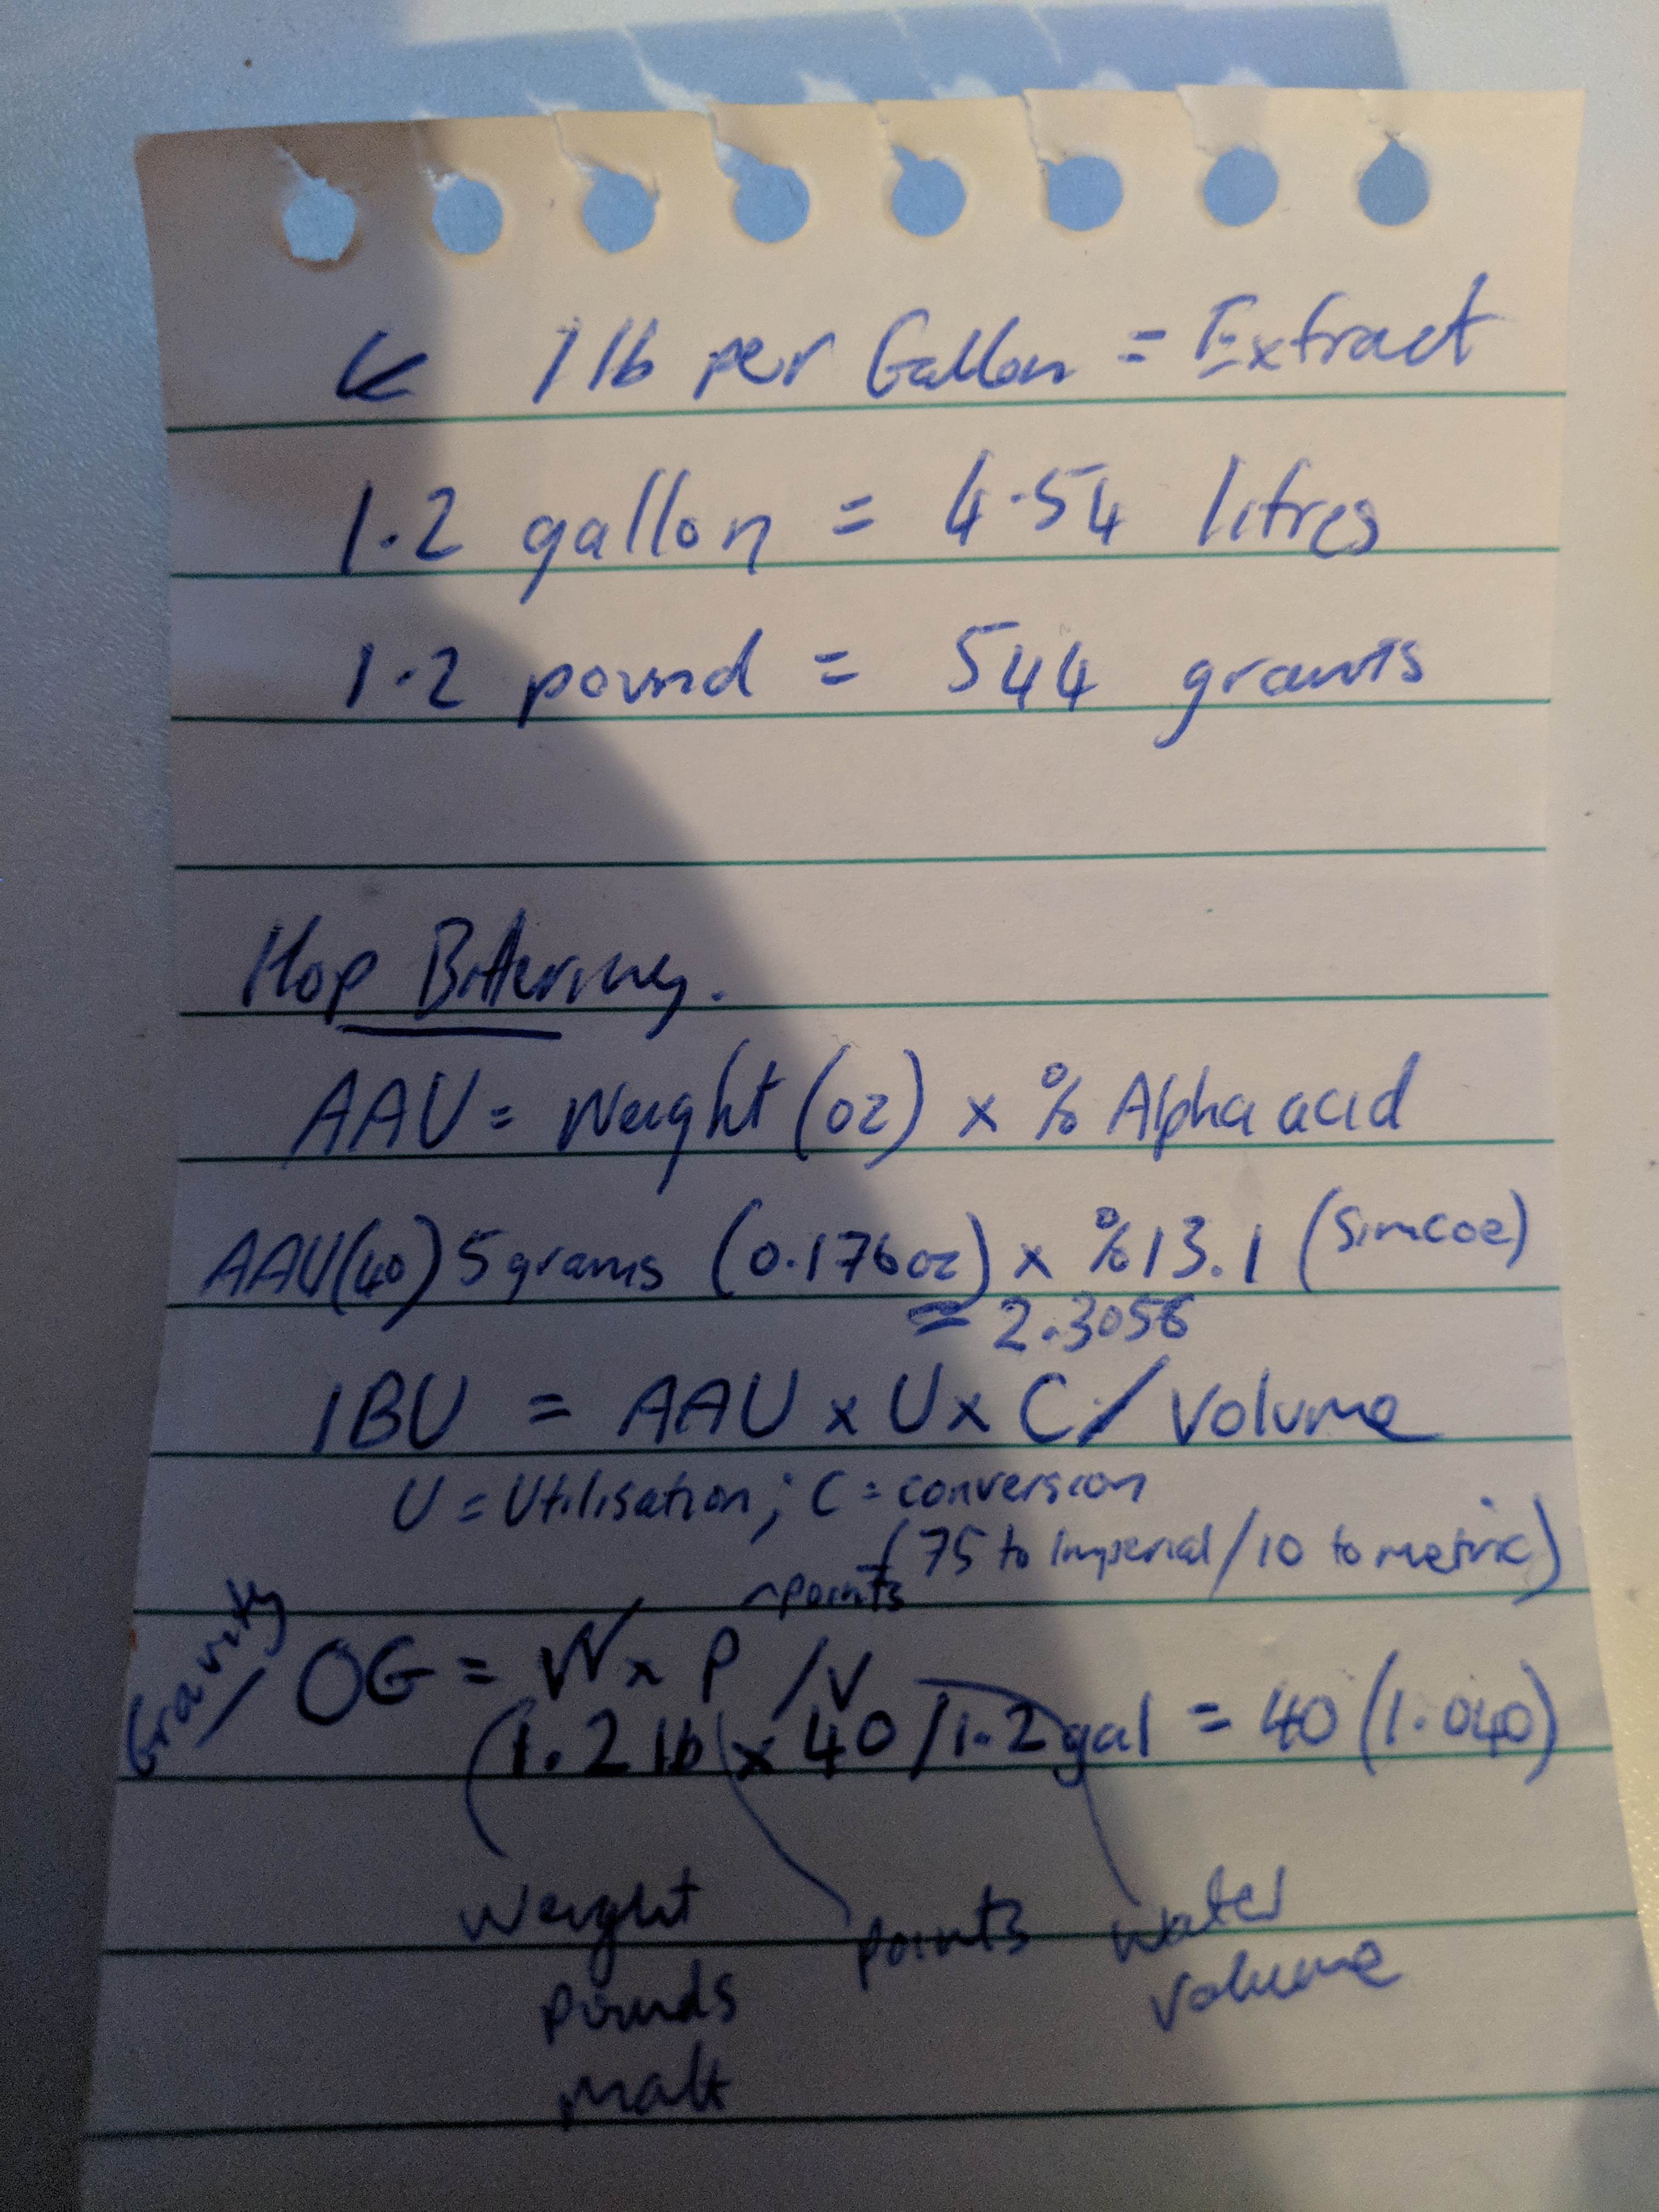 1 lb per Gallon = Extract
1.2 gallon = 4.54 litres
1.2 pound = 544 grams
Hop Bittering.
AAU = Weight (oz) x % Alpha acid
AAU(40) 5 grams (0.176oz) x %13.1 (Simcoe)
= 2.3056
IBU = AAU x U x C / Volume
U = Utilisation; C = conversion
(75 to Imperial/10 to metric)
points
Gravity OG = W x P / V
(1.2 lb x 40 / 1.2 gal = 40 (1.040)
Weight points water
pounds volume
malt